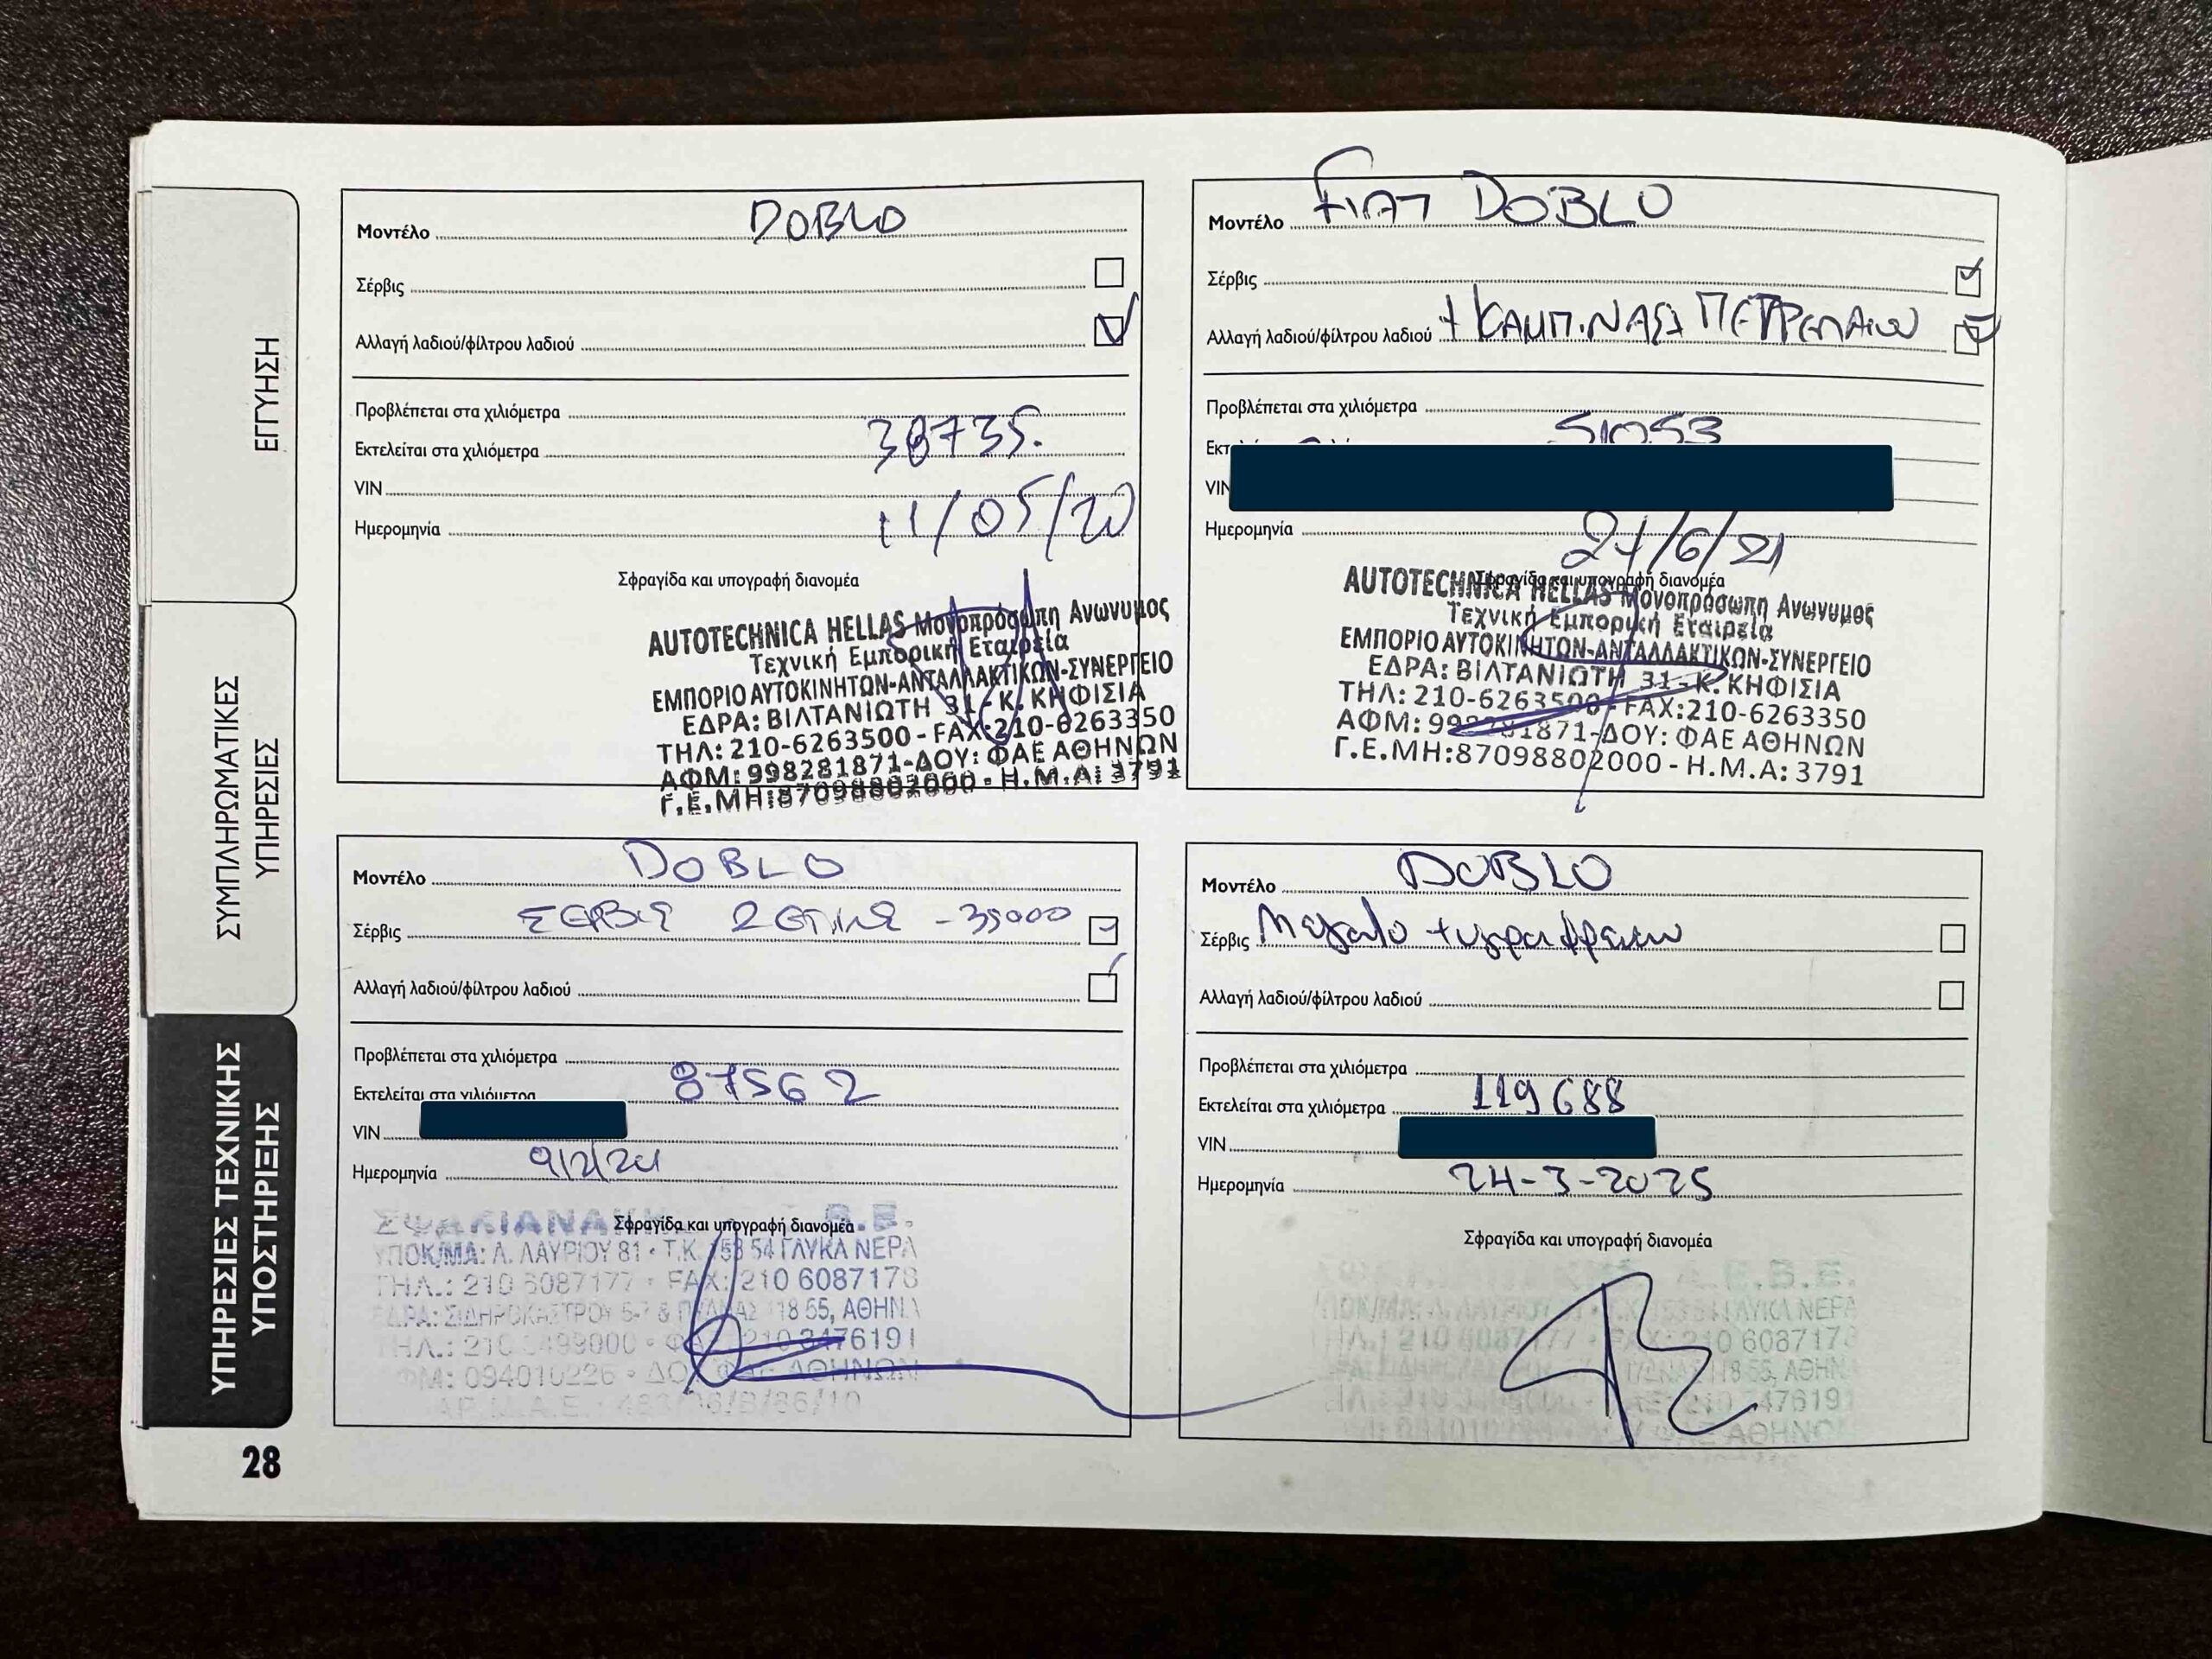 ΕΓΓΥΗΣΗ
ΣΥΜΠΛΗΡΩΜΑΤΙΚΕΣ
ΥΠΗΡΕΣΙΕΣ
ΥΠΗΡΕΣΙΕΣ ΤΕΧΝΙΚΗΣ
ΥΠΟΣΤΗΡΙΞΗΣ
28
Μοντέλο DOBLO
Σέρβις
Αλλαγή λαδιού/φίλτρου λαδιού
Προβλέπεται στα χιλιόμετρα
Εκτελείται στα χιλιόμετρα
VIN
Ημερομηνία 11/05/20
Σφραγίδα και υπογραφή διανομέα
AUTOTECHNICA HELLAS Μονοπρόσωπη Ανωνυμος
Τεχνική Εμπορική Εταιρεία
ΕΜΠΟΡΙΟ ΑΥΤΟΚΙΝΗΤΩΝ-ΑΝΤΑΛΛΑΚΤΙΚΩΝ-ΣΥΝΕΡΓΕΙΟ
ΕΔΡΑ: ΒΙΛΤΑΝΙΩΤΗ 31 - Κ. ΚΗΦΙΣΙΑ
ΤΗΛ: 210-6263500 - FAX:210-6263350
ΑΦΜ: 998281871-ΔΟΥ: ΦΑΕ ΑΘΗΝΩΝ
Γ.Ε.ΜΗ:87098802000 - Η.Μ.Α: 3791
Μοντέλο FIAT DOBLO
Σέρβις
Αλλαγή λαδιού/φίλτρου λαδιού +
Προβλέπεται στα χιλιόμετρα
51053
VIN
Ημερομηνία
Σφραγίδα και υπογραφή διανομέα
AUTOTECHNICA HELLAS Μονοπρόσωπη Ανωνυμος
Τεχνική Εμπορική Εταιρεία
ΕΜΠΟΡΙΟ ΑΥΤΟΚΙΝΗΤΩΝ-ΑΝΤΑΛΛΑΚΤΙΚΩΝ-ΣΥΝΕΡΓΕΙΟ
ΕΔΡΑ: ΒΙΛΤΑΝΙΩΤΗ 31 - Κ. ΚΗΦΙΣΙΑ
ΤΗΛ: 210-6263500 - FAX:210-6263350
ΑΦΜ: 998281871-ΔΟΥ: ΦΑΕ ΑΘΗΝΩΝ
Γ.Ε.ΜΗ:87098802000 - Η.Μ.Α: 3791
Μοντέλο DOBLO
Σέρβις ΣΕΡΒΙΣ - 35000
Αλλαγή λαδιού/φίλτρου λαδιού
Προβλέπεται στα χιλιόμετρα
Εκτελείται στα χιλιόμετρα 87562
VIN
Ημερομηνία
Σφραγίδα και υπογραφή διανομέα
ΥΠΟΚ/ΜΑ: Λ. ΛΑΥΡΙΟΥ 81 • Τ.Κ. 153 54 ΓΛΥΚΑ ΝΕΡΑ
ΤΗΛ.: 210 6087177 • FAX: 210 6087178
118 55, ΑΘΗΝΑ
Μοντέλο DOBLO
Σέρβις Μεγαλο + υγρα φρενων
Αλλαγή λαδιού/φίλτρου λαδιού
Προβλέπεται στα χιλιόμετρα
Εκτελείται στα χιλιόμετρα 119688
VIN
Ημερομηνία 24-3-2025
Σφραγίδα και υπογραφή διανομέα
ΓΛΥΚΑ ΝΕΡΑ
210 6087178
118 55, ΑΘΗΝΑ